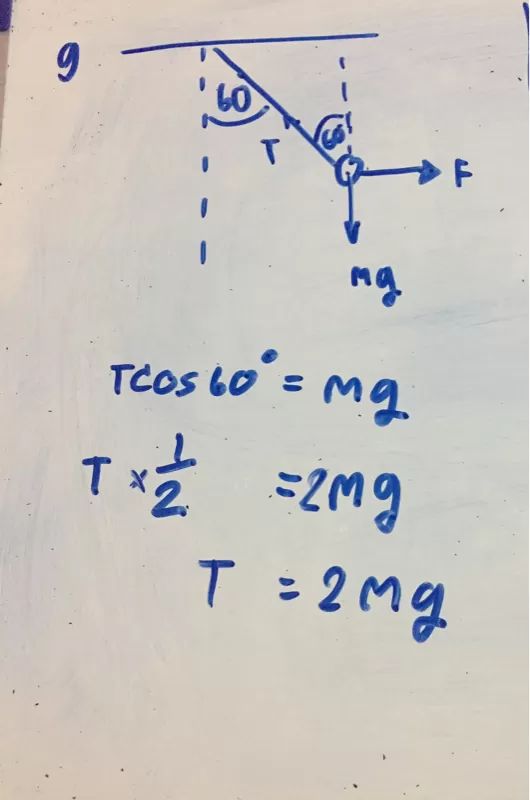 9
60
60
T
F
mg
Tcos60° = mg
T × 1/2 = 2mg
T = 2mg